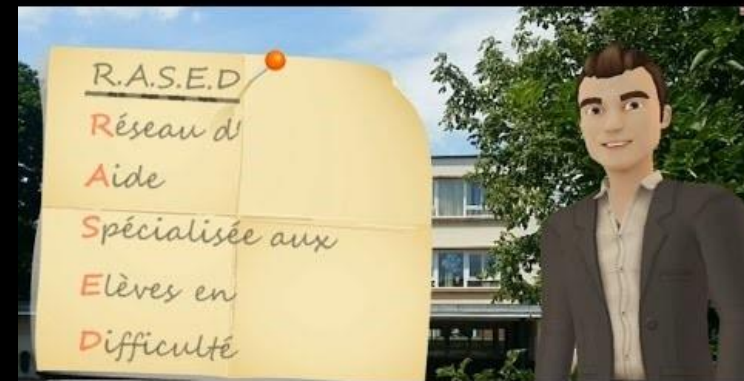 R.A.S.E.D
Réseau d'
Aide
Spécialisée aux
Elèves en
Difficulté